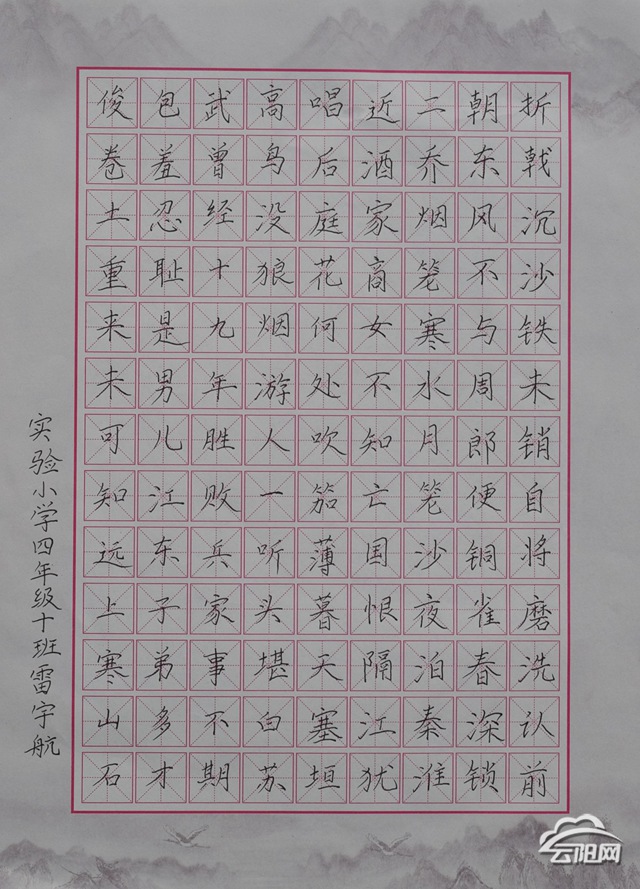 折戟沉沙铁未销自将磨洗认前
朝东风不与周郎便铜雀春深锁
二乔烟笼寒水月笼沙夜泊秦淮
近酒家商女不知亡国恨隔江犹
唱后庭花何处吹笳薄暮天塞垣
高鸟没狼烟游人一听头堪白苏
武曾经十九年胜败兵家事不期
包羞忍耻是男儿江东子弟多才
俊卷土重来未可知远上寒山石
实验小学四年级十班雷宇航
云阳网